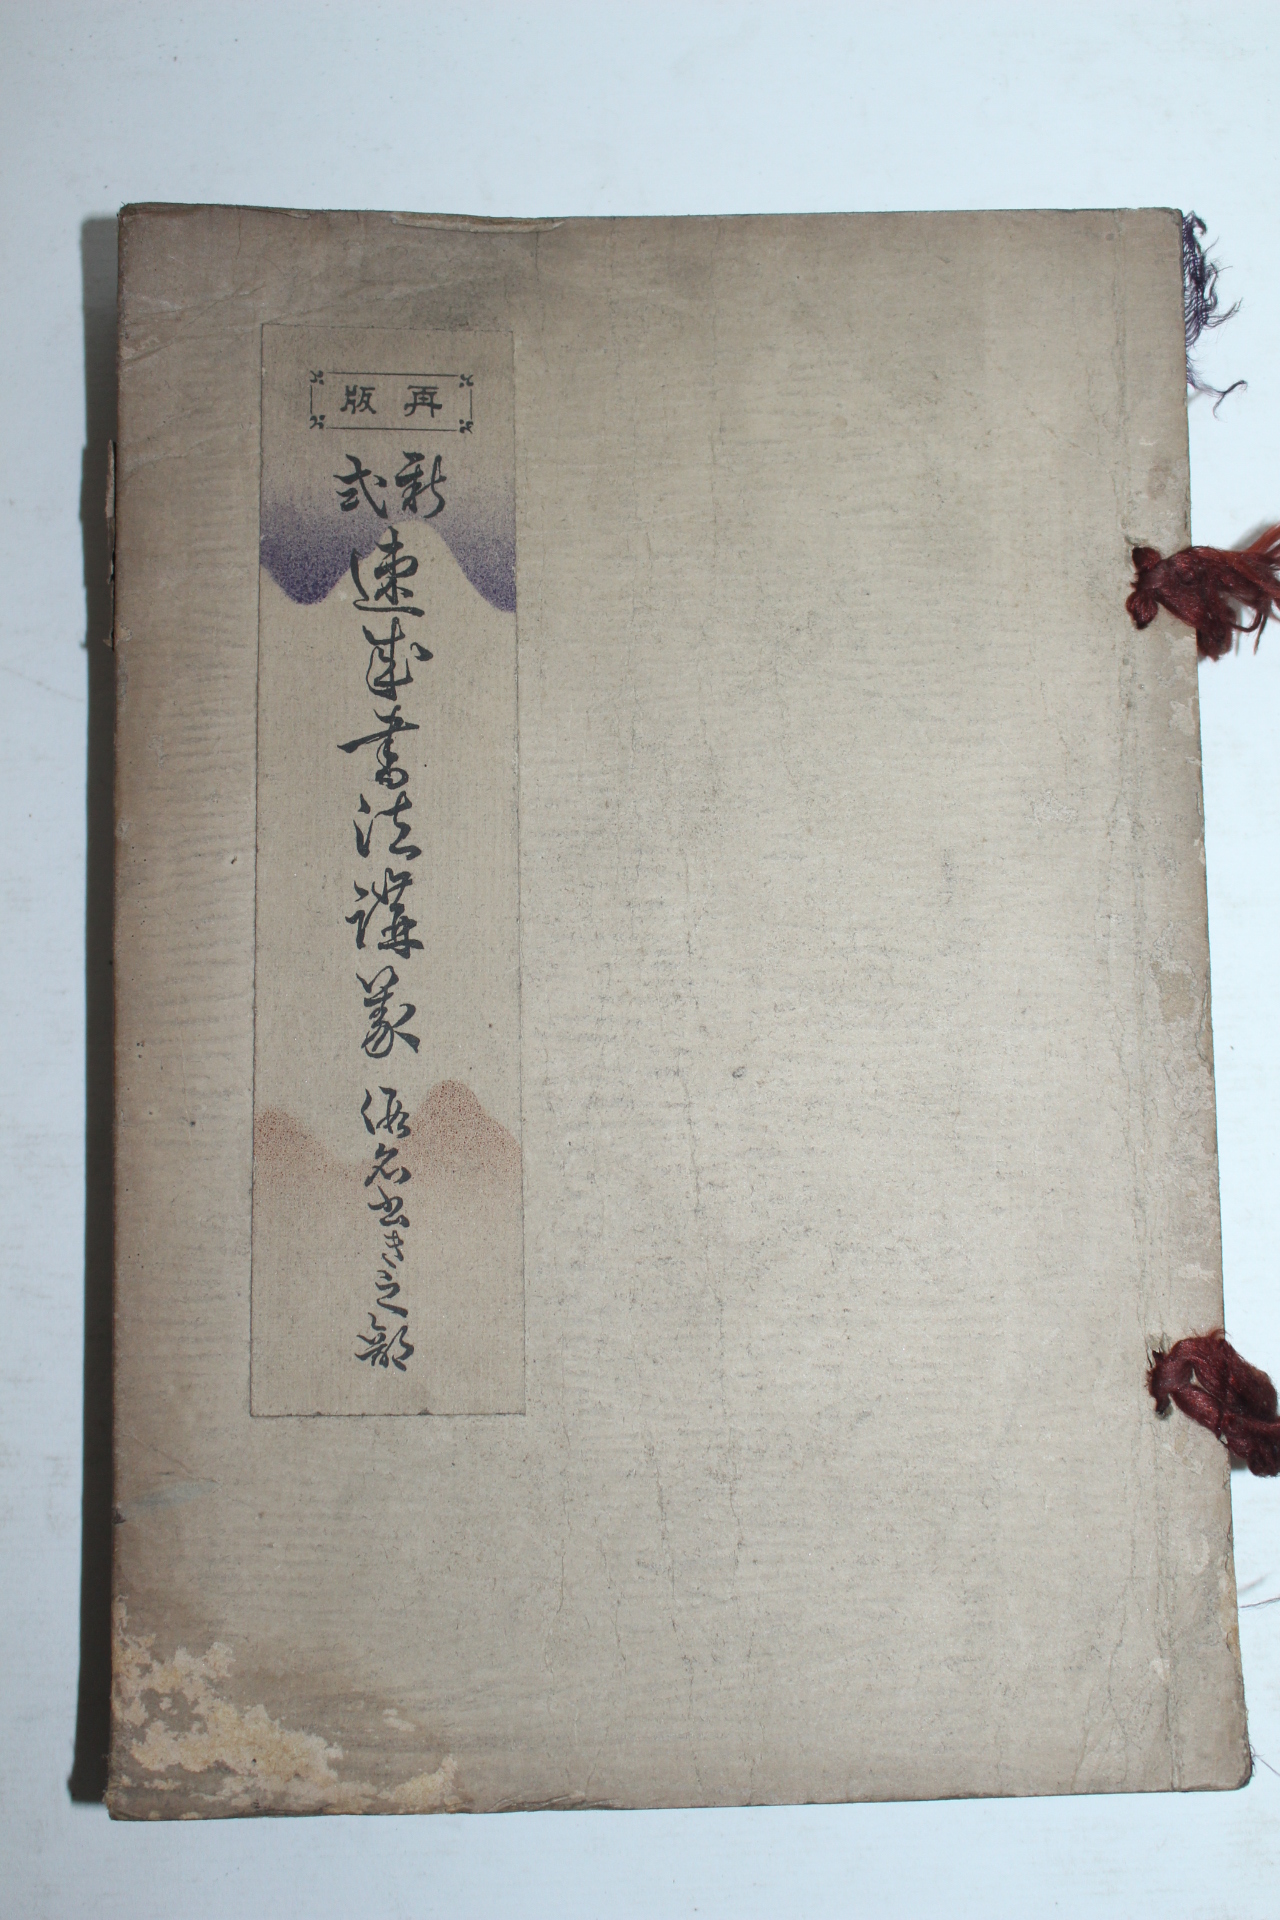 再版
新式
速成書法講義
仮名書き之部